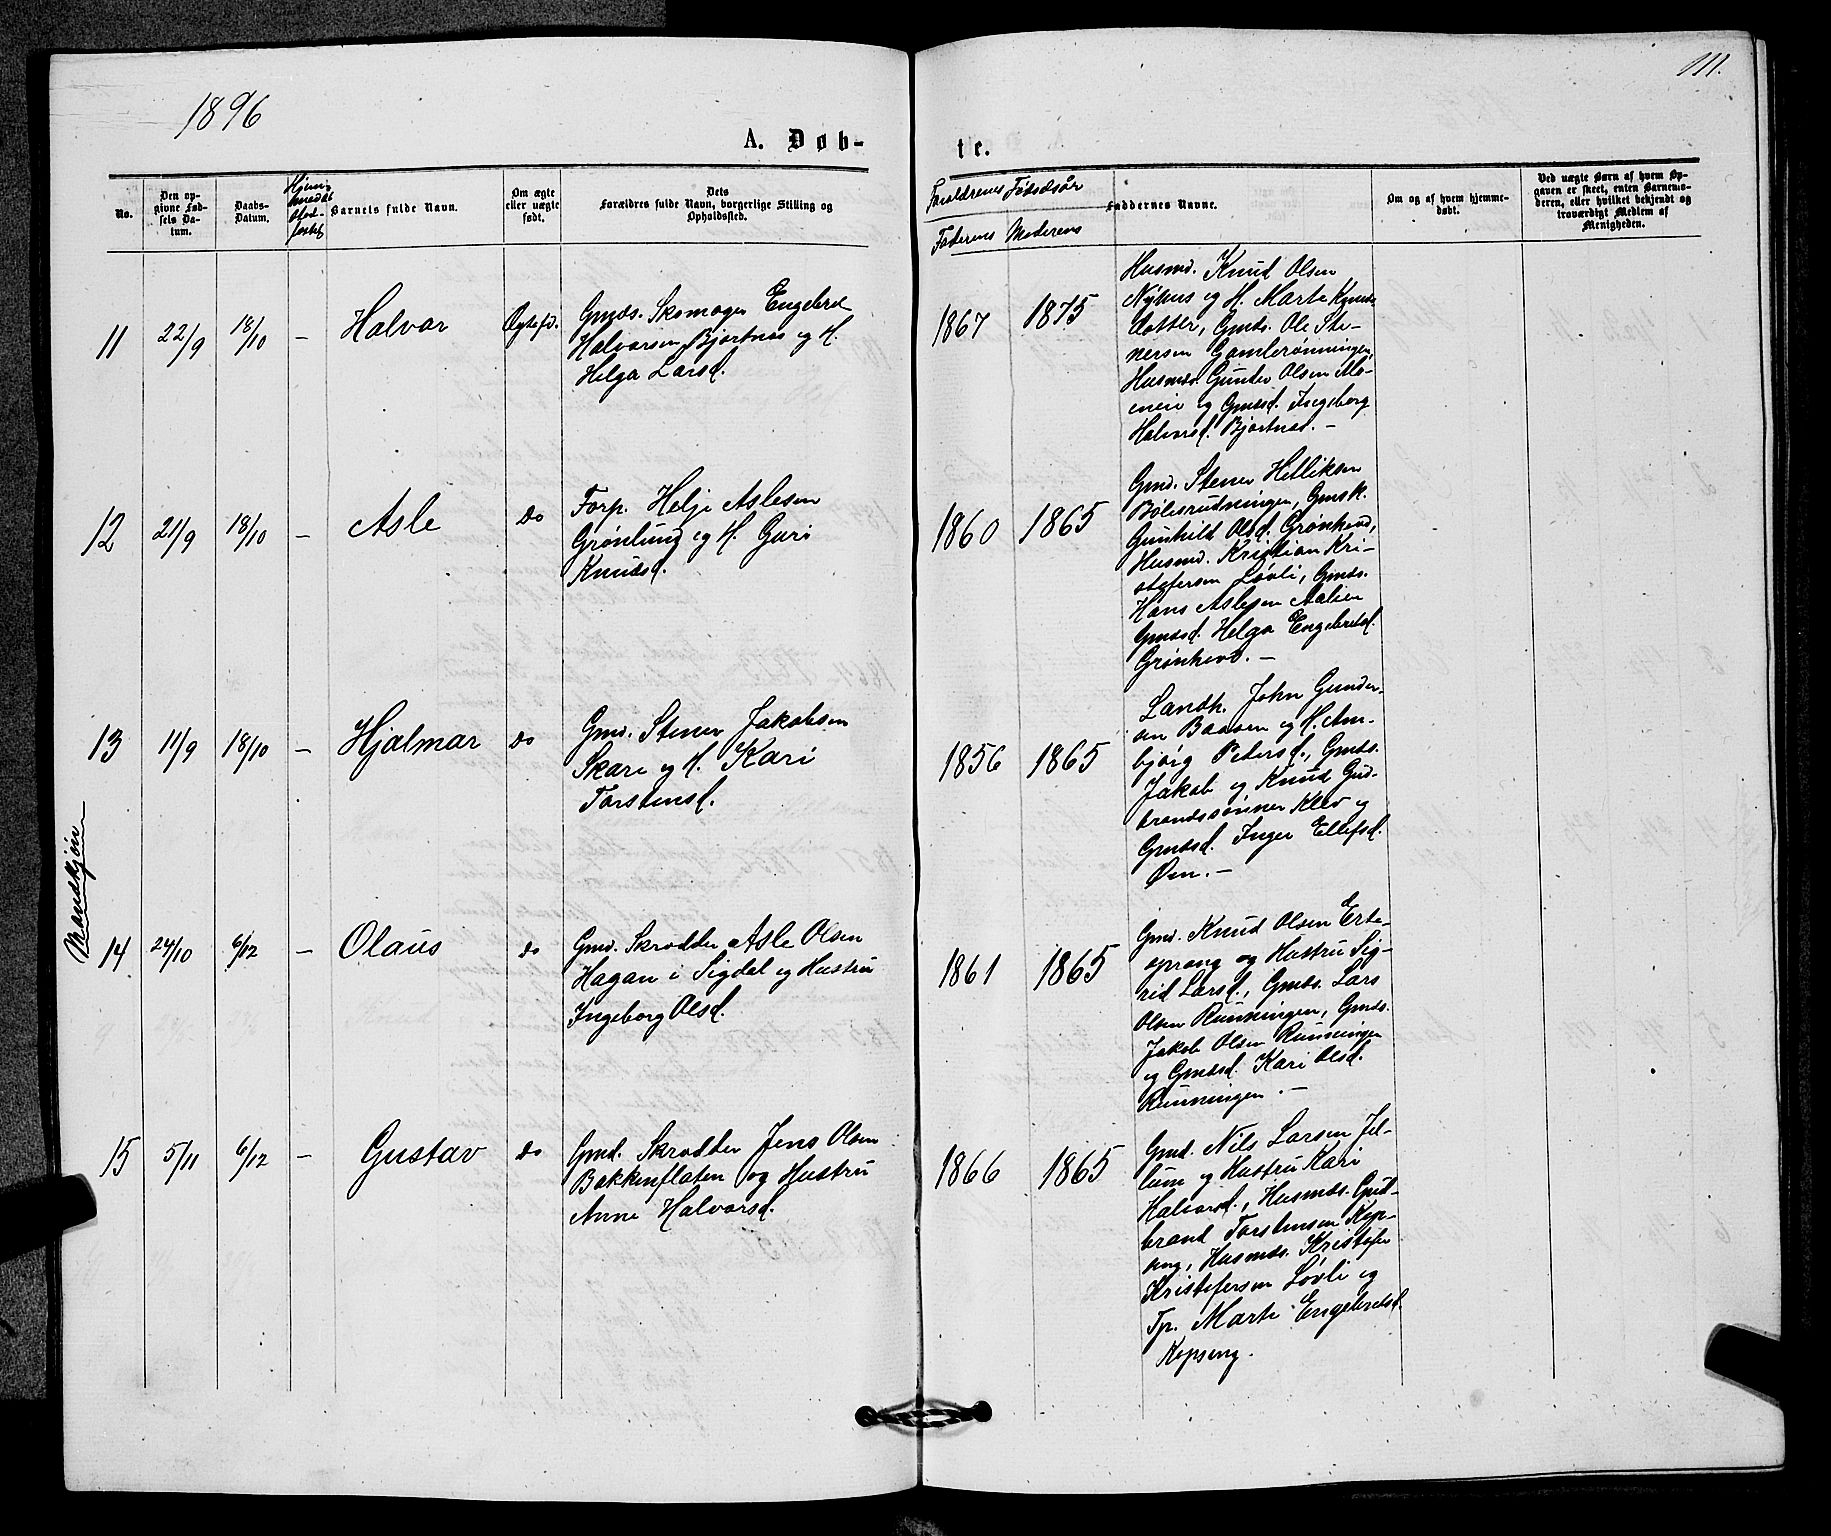 1896
111.
A. Døb-
te.
No.
Den op-
givne Fød-
sels Da-
tum.
Daabs-
Datum.
Barnets fulde Navn.
Om ægte
eller uægte
født.
Dets
Forældres fulde Navn, borgerlige Stilling og
Opholdssted.
Forældrenes Fødselsår
Faderens Moderens
Faddernes Navne.
Om og af hvem hjemme-
døbt.
Ved uægte Børn af hvem Op-
gaven er skeet, enten Barnemo-
deren, eller hvilket bekjendt og
troværdigt Medlem af
Menigheden.
Mandkjøn
11 22/9 18/10 – Halvor Ægtefd.
Gmds. Skomager Engebret
Halvorsen Bjørtnes og H.
Helga Larsd.
1867 1875
Husmd. Knud Olsen
Nyhus og H. Marte Knuds-
dotter, Gmds. Ole Ste-
nersen Gamlerønningen,
Husmds. Gunder Olsen Mo-
eneie og Gmdsd. Ingeborg
Halvorsd. Bjørtnes. –
12 21/9 18/10 – Asle do
Forp. Helje Aslesen
Grønlung og H. Guri
Knudsd.
1860 1865
Gmd. Stener Helliksen
Bølesrudningen, Gmsk.
Gunhild Olsd. Grønhovd,
Husmd. Kristian Kri-
stofersen Løvli, Gmds.
Hans Aslesen Aalien
Gmdsd. Helga Engebretsd.
Grønhovd. –
13 11/9 18/10 – Hjalmar do
Gmd. Stener Jakobsen
Skare og H. Kari
Torstensd.
1856 1865
Landh. John Gunder-
sen Baasen og H. Am-
bjørg Petersd., Gmds.
Jakob og Knud Gud-
brandssønner Klev og
Gmdsd. Inger Ellefsd.
Øen. –
14 24/10 6/12 – Olaus do
Gmd. Skrædder Asle Olsen
Hagan i Sigdal og Hustru
Ingeborg Olsd.
1861 1865
Gmd. Knud Olsen Erte-
sprang og Hustru Sig-
rid Larsd., Gmds. Lars
Olsen Runningen, Gmds.
Jakob Olsen Runningen
og Gmdsd. Kari Olsd.
Runningen. –
15 5/11 6/12 – Gustav do
Gmd. Skrædder Jens Olsen
Bakkenflaten og Hustru
Anne Halvorsd.
1866 1865
Gmd. Nils Larsen Jel-
lum og Hustru Kari
Halvorsd., Husmds. Gud-
brand Torstensen Kop-
seng, Husmds. Kristofer
Kristofersen Løvli og
Tp. Marte Engebretsd.
Kopseng.